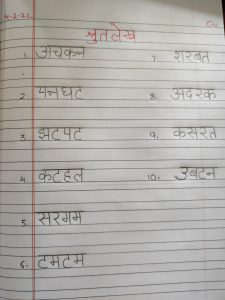 4-2-22
श्रुतलेख
1. अचकन
2. पनघट
3. झटपट
4. कटहल
5. सरगम
6. टमटम
7. शरबत
8. अदरक
9. कसरत
10. उबटन